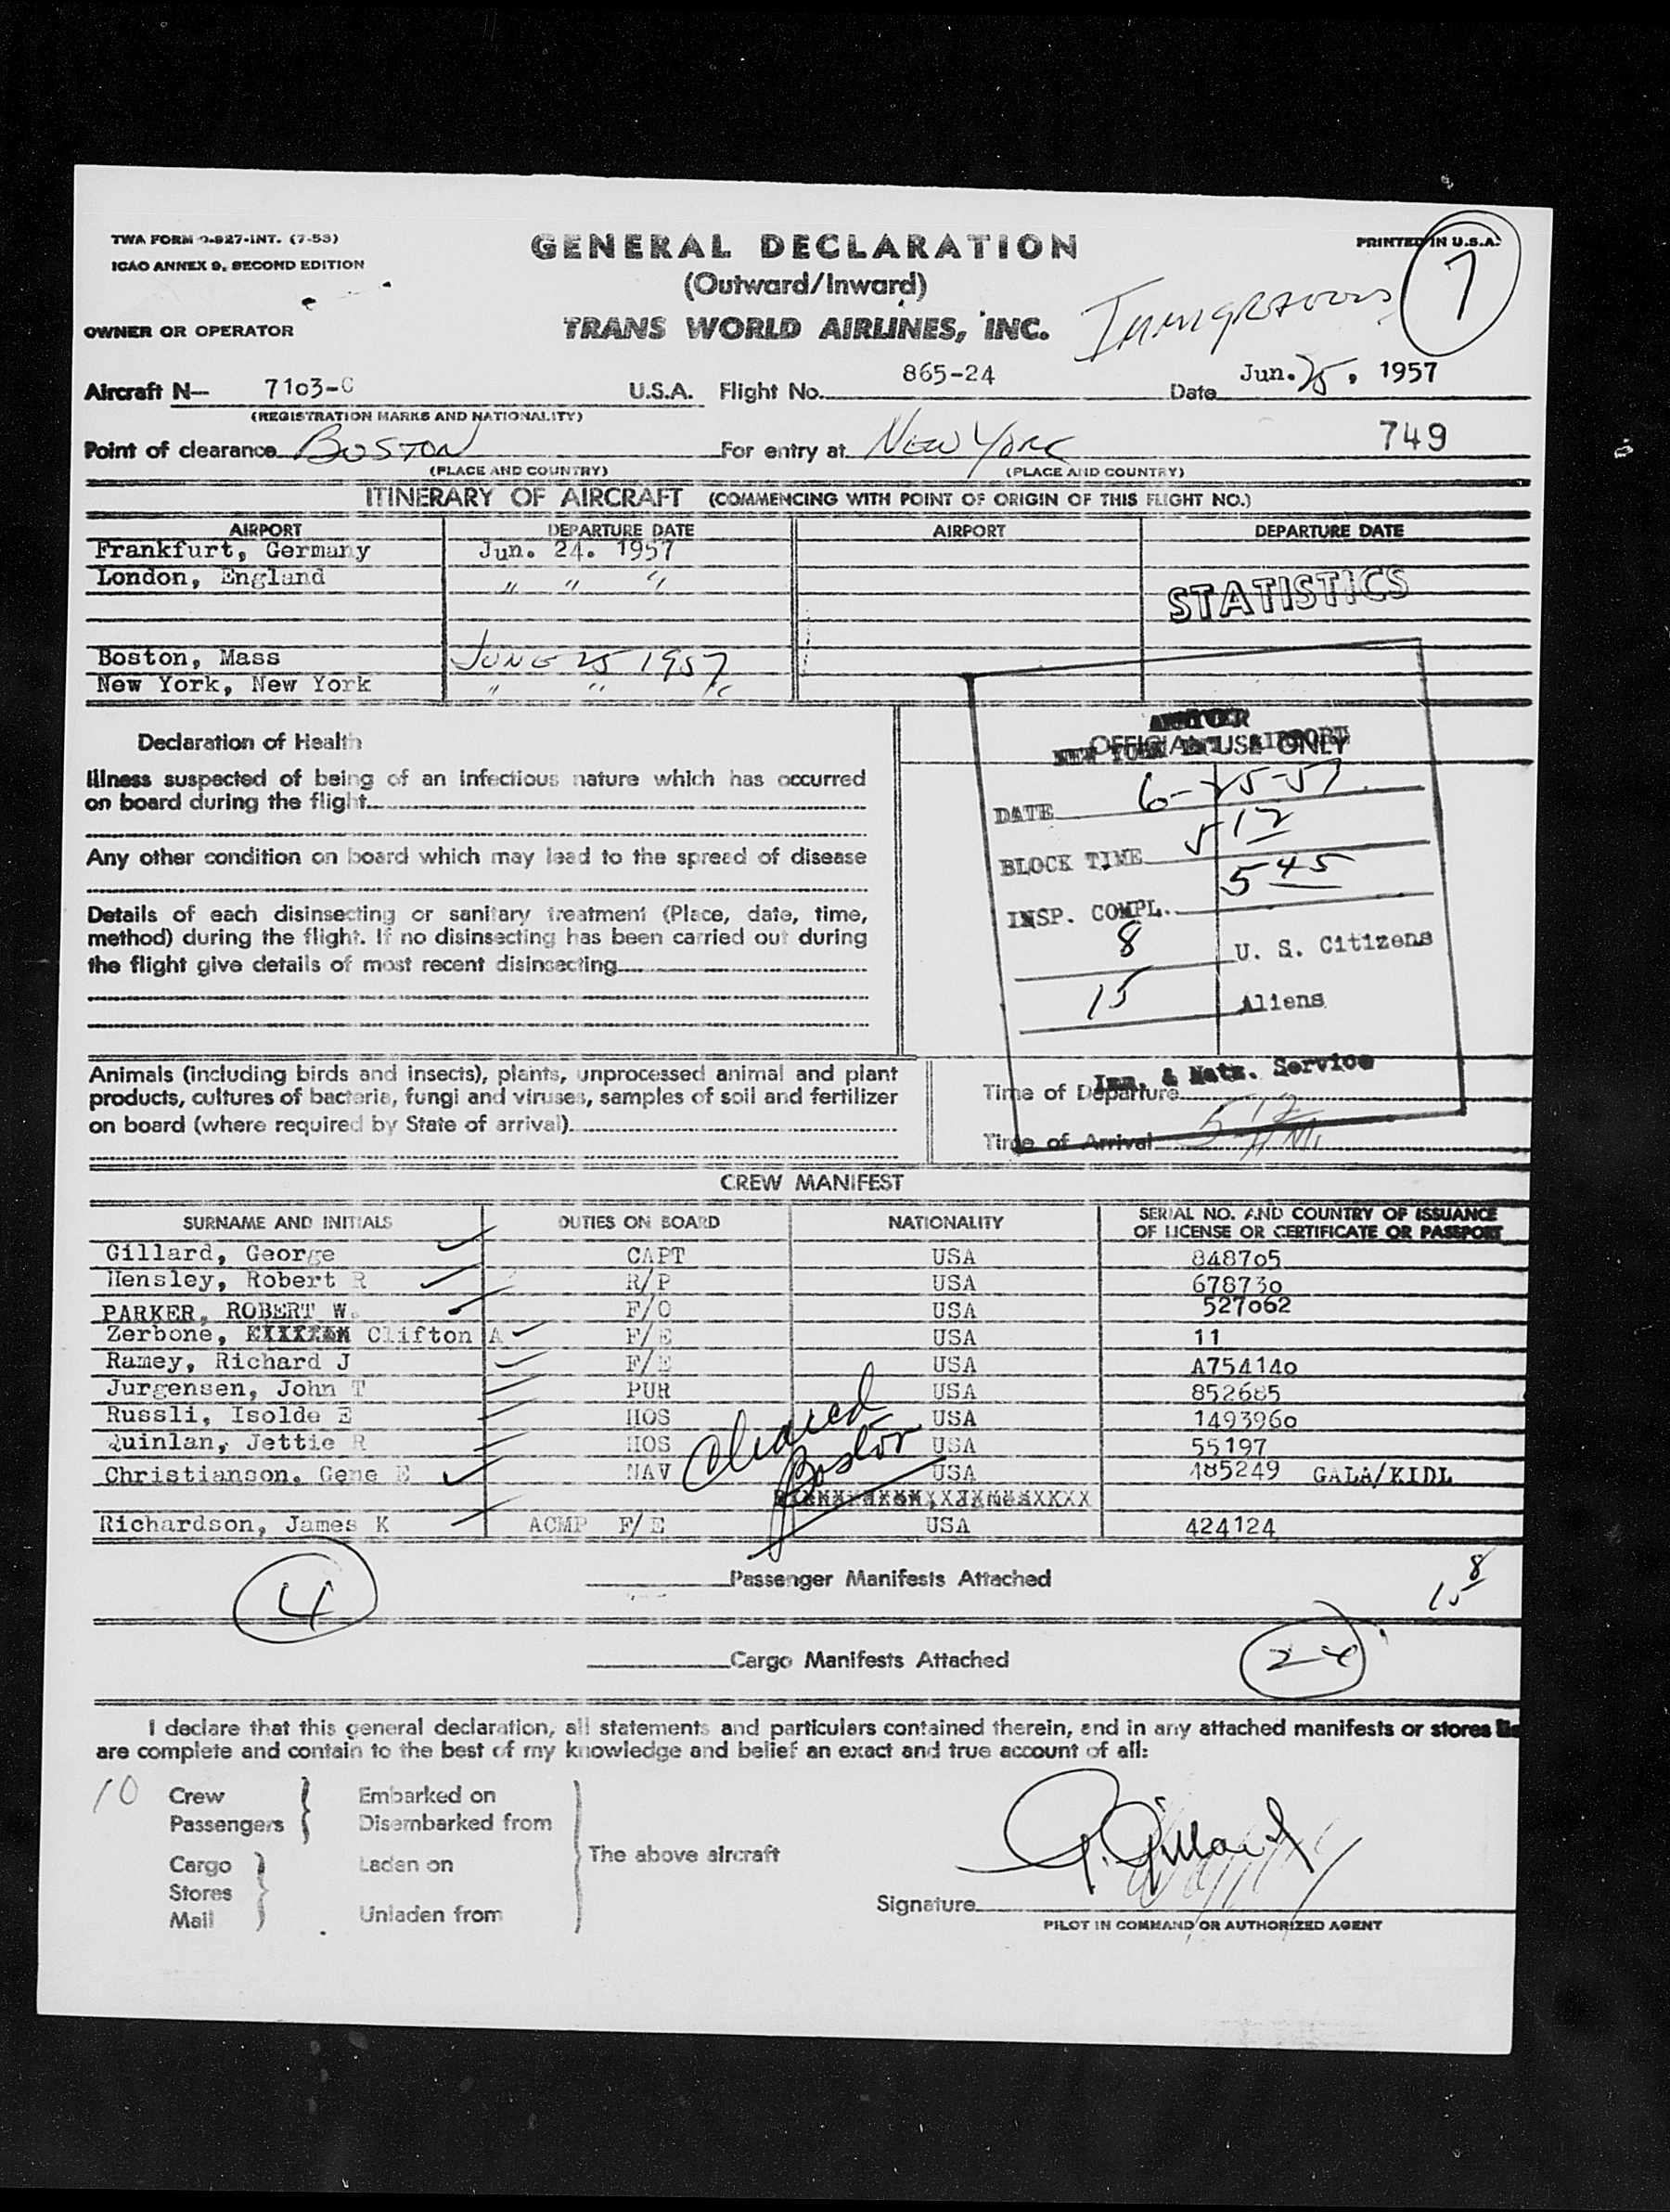 TWA FORM O-927-INT. (7-53)
ICAO ANNEX 9, SECOND EDITION
GENERAL DECLARATION
(Outward/Inward)
TRANS WORLD AIRLINES, INC.
PRINTED IN U.S.A.
7
OWNER OR OPERATOR
Aircraft N— 7103-C U.S.A. Flight No. 865-24 Date Jun. 25, 1957
(REGISTRATION MARKS AND NATIONALITY)
Point of clearance BOSTON For entry at NEW YORK 749
(PLACE AND COUNTRY) (PLACE AND COUNTRY)
ITINERARY OF AIRCRAFT (COMMENCING WITH POINT OF ORIGIN OF THIS FLIGHT NO.)
AIRPORT DEPARTURE DATE AIRPORT DEPARTURE DATE
Frankfurt, Germany Jun. 24. 1957
London, England " " "
STATISTICS
Boston, Mass JUNE 25 1957
New York, New York " " "
Declaration of Health
OFFICIAL USE ONLY
Illness suspected of being of an infectious nature which has occurred
on board during the flight
Any other condition on board which may lead to the spread of disease
Details of each disinsecting or sanitary treatment (Place, date, time,
method) during the flight. If no disinsecting has been carried out during
the flight give details of most recent disinsecting
DATE 6-25-57
BLOCK TIME 512
INSP. COMPL. 545
8 U. S. Citizens
15 Aliens
Imm. & Natz. Service
Animals (including birds and insects), plants, unprocessed animal and plant
products, cultures of bacteria, fungi and viruses, samples of soil and fertilizer
on board (where required by State of arrival)
Time of Departure
Time of Arrival 512
CREW MANIFEST
SURNAME AND INITIALS DUTIES ON BOARD NATIONALITY SERIAL NO. AND COUNTRY OF ISSUANCE
OF LICENSE OR CERTIFICATE OR PASSPORT
Gillard, George CAPT USA 848705
Hensley, Robert R R/P USA 678730
PARKER, ROBERT W. F/O USA 527062
Zerbone, Clifton A F/E USA 11
Ramey, Richard J F/E USA A754140
Jurgensen, John T PUR USA 852685
Russli, Isolde E HOS USA 1493960
Quinlan, Jettie R HOS USA 55197
Christianson, Gene E NAV USA 485249 GALA/KIDL
Richardson, James K ACMP F/E USA 424124
Cleared
Boston
4
Passenger Manifests Attached
8
15
Cargo Manifests Attached
24
I declare that this general declaration, all statements and particulars contained therein, and in any attached manifests or stores
are complete and contain to the best of my knowledge and belief an exact and true account of all:
10 Crew
Passengers
Embarked on
Disembarked from
Cargo
Stores
Mail
Laden on
Unladen from
The above aircraft
Signature G. Gillard
PILOT IN COMMAND OR AUTHORIZED AGENT